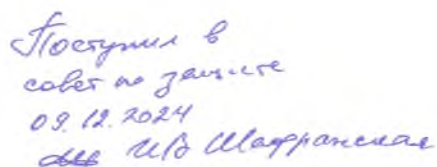 Поступил в
совет по защите
09.12.2024
И.В Шафранская